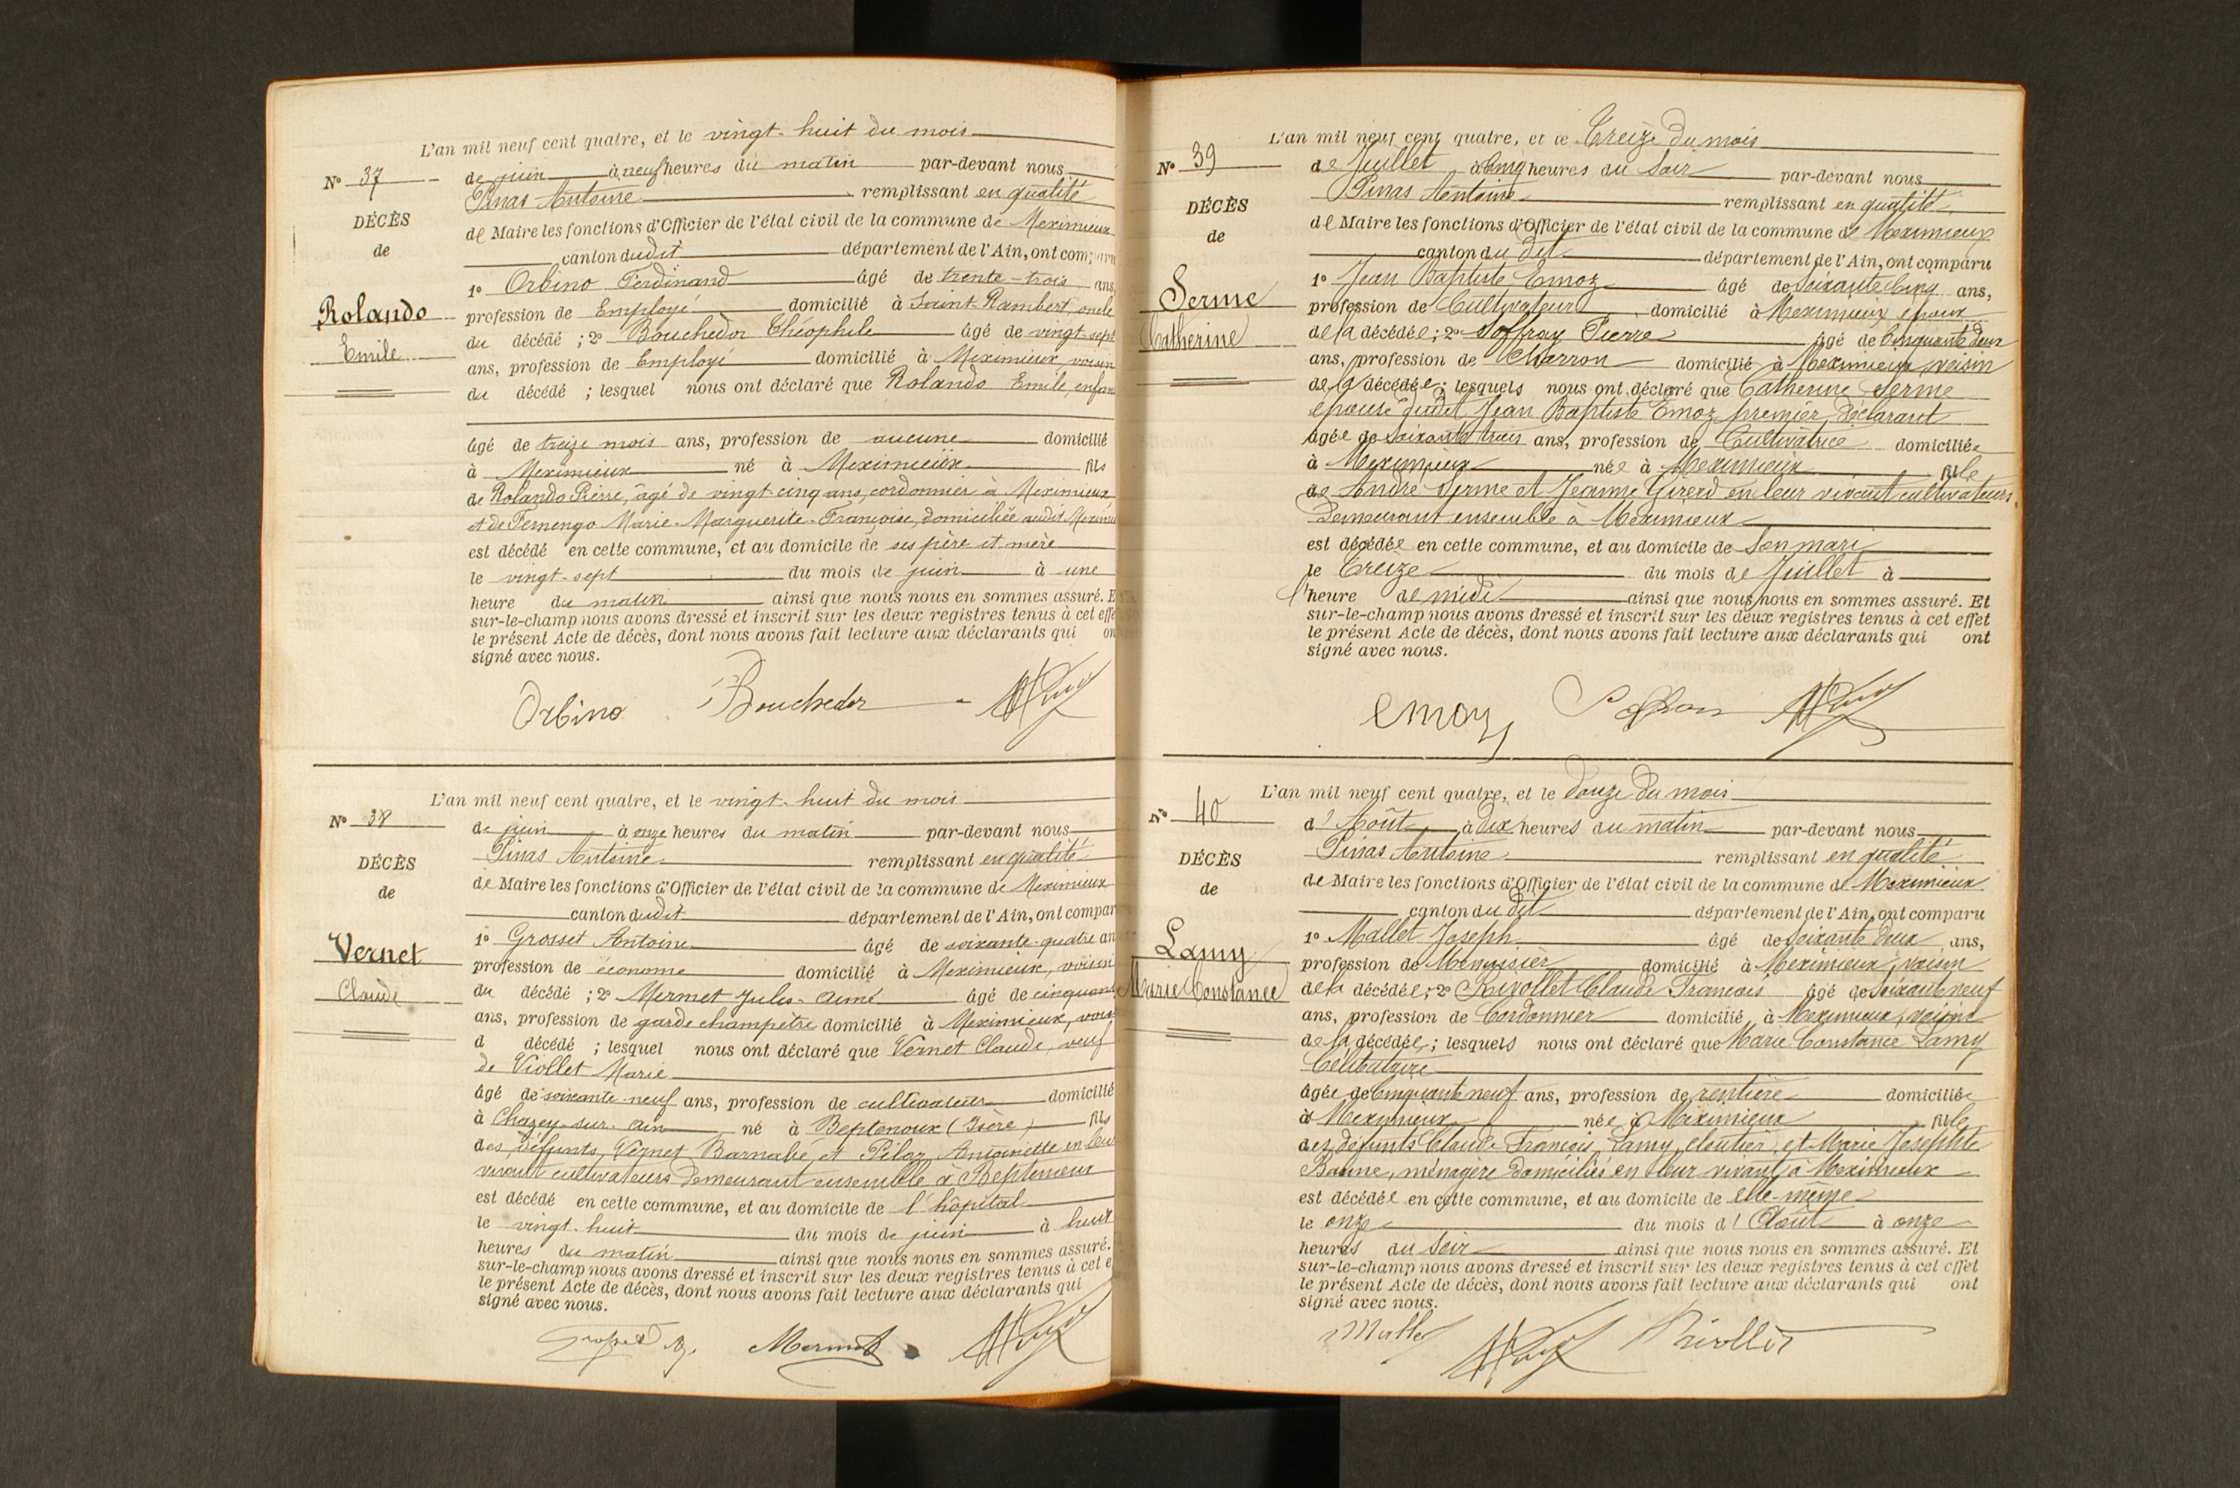 L'an mil neuf cent quatre, et le vingt-huit du mois
N° 37
de juin à neuf heures du matin par-devant nous
Pinas Antoine remplissant en qualité
DÉCÈS
de Maire les fonctions d'Officier de l'état civil de la commune de Meximieux
de
canton dudit département de l'Ain, ont comparu
1° Orbino Ferdinand âgé de trente-trois ans,
Rolando
profession de Employé domicilié à Saint Rambert, oncle
du décédé ; 2° Bouchedor Théophile âgé de vingt-sept
Emile
ans, profession de Employé domicilié à Meximieux, voisin
du décédé ; lesquel nous ont déclaré que Rolando Emile, enfant
âgé de treize mois ans, profession de aucune domicilié
à Meximieux né à Meximieux fils
de Rolando Pierre, âgé de vingt-cinq ans, cordonnier à Meximieux
et de Fernengo Marie-Marguerite-Françoise, domiciliée audit Meximieux
est décédé en cette commune, et au domicile de ses père et mère
le vingt-sept du mois de juin à une
heure du matin ainsi que nous nous en sommes assuré. E
sur-le-champ nous avons dressé et inscrit sur les deux registres tenus à cet effe
le présent Acte de décès, dont nous avons fait lecture aux déclarants qui on
signé avec nous.
Orbino Bouchedor
L'an mil neuf cent quatre, et le vingt-huit du mois
N° 38
de juin à onze heures du matin par-devant nous
Pinas Antoine remplissant en qualité
DÉCÈS
de Maire les fonctions d'Officier de l'état civil de la commune de Meximieux
de
canton dudit département de l'Ain, ont compar
1° Grosset Antoine âgé de soixante-quatre an
Vernet
profession de économe domicilié à Meximieux, voisin
Claude
du décédé ; 2° Mermet Jules-Aimé âgé de cinquante
ans, profession de garde champêtre domicilié à Meximieux, vois
d décédé ; lesquel nous ont déclaré que Vernet Claude, veuf
de Viollet Marie
âgé de soixante-neuf ans, profession de cultivateur domicilié
à Chazey-sur-Ain né à Beptenoux (Isère) fils
des défunts Vernet Barnabé et Pilaz Antoinette en leur
vivant cultivateurs demeurant ensemble à Beptenoux
est décédé en cette commune, et au domicile de l'hôpital
le vingt-huit du mois de juin à huit
heures du matin ainsi que nous nous en sommes assuré.
sur-le-champ nous avons dressé et inscrit sur les deux registres tenus à cet e
le présent Acte de décès, dont nous avons fait lecture aux déclarants qui
signé avec nous.
Mermet
L'an mil neuf cent quatre, et le Treize du mois
N° 39
de Juillet à Cinq heures du Soir par-devant nous
Pinas Antoine remplissant en qualité
DÉCÈS
de Maire les fonctions d'Officier de l'état civil de la commune de Meximieux
de
canton du dit département de l'Ain, ont comparu
1° Jean Baptiste Emoz âgé de Soixante Cinq ans,
Serme
profession de Cultivateur domicilié à Meximieux époux
Catherine
de la décédée ; 2° Soffray Pierre âgé de Cinquante deux
ans, profession de Charron domicilié à Meximieux voisin
de la décédée ; lesquels nous ont déclaré que Catherine Serme
épouse dudit Jean Baptiste Emoz premier déclarant
âgée de soixante trois ans, profession de Cultivatrice domiciliée
à Meximieux née à Meximieux fille
de André Serme et Jeanne Girerd en leur vivant cultivateurs
Demeurant ensemble à Meximieux
est décédée en cette commune, et au domicile de Son mari
le Treize du mois de Juillet à
l'heure de midi ainsi que nous nous en sommes assuré. Et
sur-le-champ nous avons dressé et inscrit sur les deux registres tenus à cet effet
le présent Acte de décès, dont nous avons fait lecture aux déclarants qui ont
signé avec nous.
emoz
L'an mil neuf cent quatre, et le douze du mois
N° 40
d'Août à dix heures du matin par-devant nous
Pinas Antoine remplissant en qualité
DÉCÈS
de Maire les fonctions d'Officier de l'état civil de la commune de Meximieux
de
canton du dit département de l'Ain, ont comparu
1° Mallet Joseph âgé de soixante deux ans,
Lamy
profession de Menuisier domicilié à Meximieux, voisin
Marie Constance
de la décédée ; 2° Rivollet Claude François âgé de soixante neuf
ans, profession de Cordonnier domicilié à Meximieux, voisin
de la décédée ; lesquels nous ont déclaré que Marie Constance Lamy
Célibataire
âgée de Cinquante neuf ans, profession de rentière domiciliée
à Meximieux née à Meximieux fille
des défunts Claude François Lamy, cloutier, et Marie Josephte
Bonne, ménagère domiciliés en leur vivant à Meximieux
est décédée en cette commune, et au domicile de elle-même
le onze du mois d'Août à onze
heures du Soir ainsi que nous nous en sommes assuré. Et
sur-le-champ nous avons dressé et inscrit sur les deux registres tenus à cet effet
le présent Acte de décès, dont nous avons fait lecture aux déclarants qui ont
signé avec nous.
Mallet Rivollet